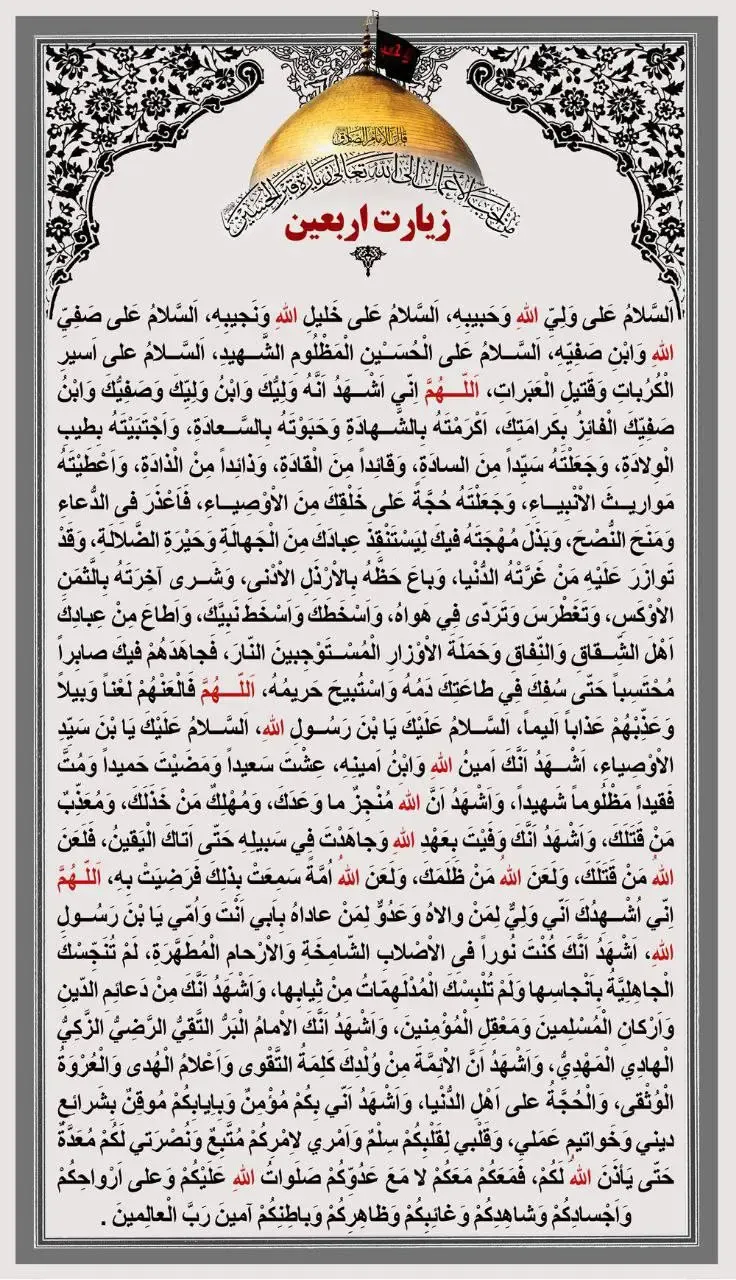 قال الإمام الصادق
من أحب الأعمال إلى الله تعالى زيارة قبر الحسين
زیارت اربعین
اَلسَّلامُ عَلى وَلِيِّ اللهِ وَحَبيبِهِ، اَلسَّلامُ عَلى خَليلِ اللهِ وَنَجيبِهِ، اَلسَّلامُ عَلى صَفِيِّ
اللهِ وَابْنِ صَفِيِّهِ، اَلسَّلامُ عَلى الْحُسَيْنِ الْمَظْلُومِ الشَّهيدِ، اَلسَّلامُ على اَسيرِ
الْكُرُباتِ وَقَتيلِ الْعَبَراتِ، اَللّـهُمَّ اِنّي اَشْهَدُ اَنَّهُ وَلِيُّكَ وَابْنُ وَلِيِّكَ وَصَفِيُّكَ وَابْنُ
صَفِيِّكَ الْفائِزُ بِكَرامَتِكَ، اَكْرَمْتَهُ بِالشَّهادَةِ وَحَبَوْتَهُ بِالسَّعادَةِ، وَاَجْتَبَيْتَهُ بِطيبِ
الْوِلادَةِ، وَجَعَلْتَهُ سَيِّداً مِنَ السادَةِ، وَقائِداً مِنَ الْقادَةِ، وَذائِداً مِنْ الْذادَةِ، وَاَعْطَيْتَهُ
مَواريثَ الاَْنْبِياءِ، وَجَعَلْتَهُ حُجَّةً عَلى خَلْقِكَ مِنَ الاَْوْصِياءِ، فَاَعْذَرَ فىِ الدُّعاءِ
وَمَنَحَ النُّصْحَ، وَبَذَلَ مُهْجَتَهُ فيكَ لِيَسْتَنْقِذَ عِبادَكَ مِنَ الْجَهالَةِ وَحَيْرَةِ الضَّلالَةِ، وَقَدْ
تَوازَرَ عَلَيْهِ مَنْ غَرَّتْهُ الدُّنْيا، وَباعَ حَظَّهُ بِالاَْرْذَلِ الاَْدْنى، وَشَرى آخِرَتَهُ بِالَّثمَنِ
الاَْوْكَسِ، وَتَغَطْرَسَ وَتَرَدّى فِي هَواهُ، وَاَسْخَطَكَ وَاَسْخَطَ نَبِيَّكَ، وَاَطاعَ مِنْ عِبادِكَ
اَهْلَ الشِّقاقِ وَالنِّفاقِ وَحَمَلَةَ الاَْوْزارِ الْمُسْتَوْجِبينَ النّارَ، فَجاهَدَهُمْ فيكَ صابِراً
مُحْتَسِباً حَتّى سُفِكَ فِي طاعَتِكَ دَمُهُ وَاسْتُبيحَ حَريمُهُ، اَللّـهُمَّ فَالْعَنْهُمْ لَعْناً وَبيلاً
وَعَذِّبْهُمْ عَذاباً اَليماً، اَلسَّلامُ عَلَيْكَ يَا بْنَ رَسُولِ اللهِ، اَلسَّلامُ عَلَيْكَ يَا بْنَ سَيِّدِ
الاَْوْصِياءِ، اَشْهَدُ اَنَّكَ اَمينُ اللهِ وَابْنُ اَمينِهِ، عِشْتَ سَعيداً وَمَضَيْتَ حَميداً وَمُتَّ
فَقيداً مَظْلُوماً شَهيداً، وَاَشْهَدُ اَنَّ اللهَ مُنْجِزٌ ما وَعَدَكَ، وَمُهْلِكٌ مَنْ خَذَلَكَ، وَمُعَذِّبٌ
مَنْ قَتَلَكَ، وَاَشْهَدُ اَنَّكَ وَفَيْتَ بِعَهْدِ اللهِ وَجاهَدْتَ فِي سَبيلِهِ حَتّى اَتاكَ الْيَقينُ، فَلَعَنَ
اللهُ مَنْ قَتَلَكَ، وَلَعَنَ اللهُ مَنْ ظَلَمَكَ، وَلَعَنَ اللهُ اُمَّةً سَمِعَتْ بِذلِكَ فَرَضِيَتْ بِهِ، اَللّـهُمَّ
اِنّي اُشْهِدُكَ اَنّي وَلِيٌّ لِمَنْ والاهُ وَعَدُوٌّ لِمَنْ عاداهُ بِاَبي اَنْتَ وَاُمّي يَا بْنَ رَسُولِ
اللهِ، اَشْهَدُ اَنَّكَ كُنْتَ نُوراً فىِ الاَْصْلابِ الشّامِخَةِ وَالاَْرْحامِ الْمُطَهَّرَةِ، لَمْ تُنَجِّسْكَ
الْجاهِلِيَّةُ بِاَنْجاسِها وَلَمْ تُلْبِسْكَ الْمُدْلَهِمّاتُ مِنْ ثِيابِها، وَاَشْهَدُ اَنَّكَ مِنْ دَعائِمِ الدّينِ
وَاَرْكانِ الْمُسْلِمينَ وَمَعْقِلِ الْمُؤْمِنينَ، وَاَشْهَدُ اَنَّكَ الاِْمامُ الْبَرُّ التَّقِيُّ الرَّضِيُّ الزَّكِيُّ
الْهادِي الْمَهْدِيُّ، وَاَشْهَدُ اَنَّ الاَْئِمَّةَ مِنْ وُلْدِكَ كَلِمَةُ التَّقْوى وَاَعْلامُ الْهُدى وَالْعُرْوَةُ
الْوُثْقى، وَالْحُجَّةُ على اَهْلِ الدُّنْيا، وَاَشْهَدُ اَنّي بِكُمْ مُؤْمِنٌ وَبِاِيابِكُمْ مُوقِنٌ بِشَرائِعِ
ديني وَخَواتيمِ عَمَلي، وَقَلْبي لِقَلْبِكُمْ سِلْمٌ وَاَمْري لاَِمْرِكُمْ مُتَّبِعٌ وَنُصْرَتي لَكُمْ مُعَدَّةٌ
حَتّى يَأذَنَ اللهُ لَكُمْ، فَمَعَكُمْ مَعَكُمْ لا مَعَ عَدُوِّكُمْ صَلَواتُ اللهِ عَلَيْكُمْ وَعلى اَرْواحِكُمْ
وَاَجْسادِكُمْ وَشاهِدِكُمْ وَغائِبِكُمْ وَظاهِرِكُمْ وَباطِنِكُمْ آمينَ رَبَّ الْعالِمينَ .